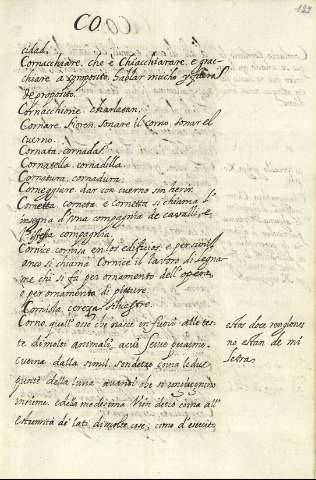 CO.
cidad.
Cornacchiare, che è Chiacchiarare, e grac-
chiare a sproposito. hablar mucho y fuera
de proposito.
Cornacchione. charlatan.
Cornare. fioren. sonare il corno. sonar el
cuerno.
Cornata. cornada.
Cornatella. cornadilla.
Cornatura. cornadura.
Corneggiare. dar con cuerno sin herir.
Cornetta. corneta. e cornetta si chiama l'
insegna d'una compagnia de cavalli, e
l'istessa compagnia.
Cornice. cornisa en los edificios. e per simil.
anco si chiama Cornice il lavoro di legna-
me che si fa per ornamento dell'opera,
o per ornamento di pitture.
Corniola. cereza silvestre.
Corno, quell'osso che nasce in fuori alle tes-
te di molti animali,
cuerno. dalla simil.
della luna
insieme. e della medesima vien detto corno all'
estremità de' lati di molte cose, como d'esercito
estos doce renglones
no estan de mi
letra